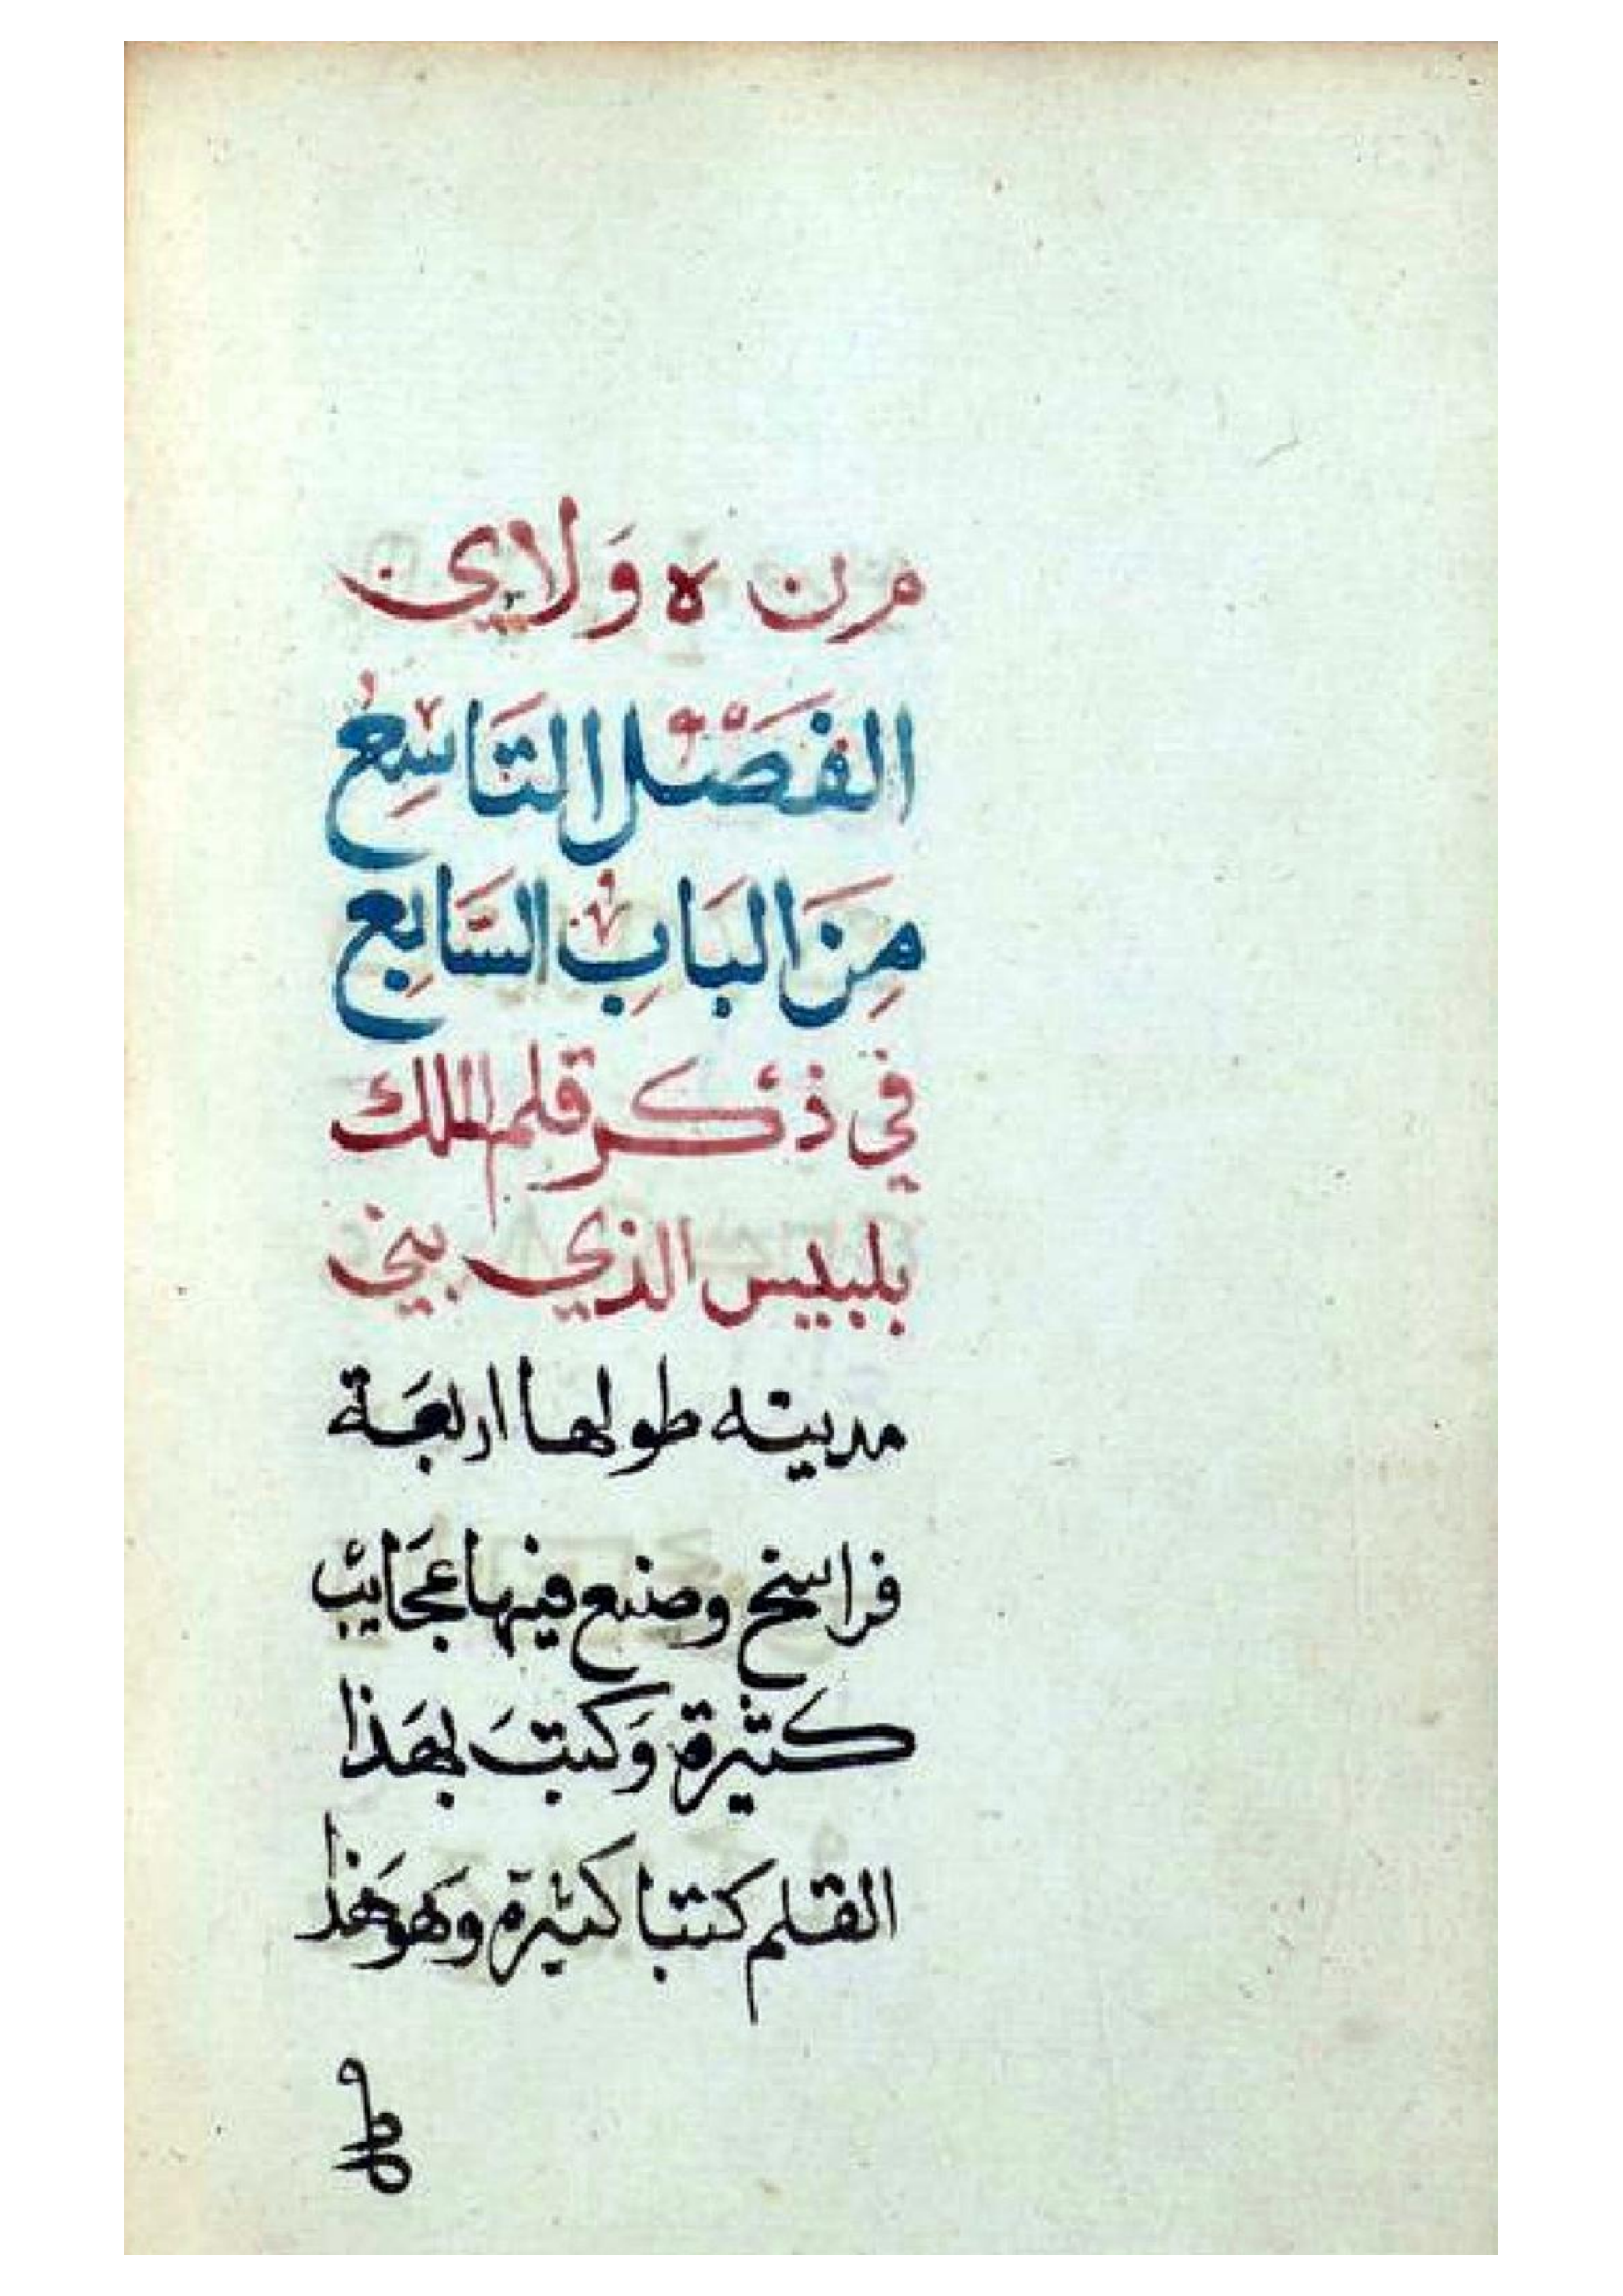 م ن ه و لا ي
الفَصْل التَاسِعُ
مِنَ البَابِ السَّابِع
في ذكر قلم الملك
بلبيس الذي بني
مدينه طولها اربعَة
فراسخ وصنع فيها عجَايبْ
كثيرة وَكتبَ بهَذا
القلم كتبا كثيرة وَهوَهَذا